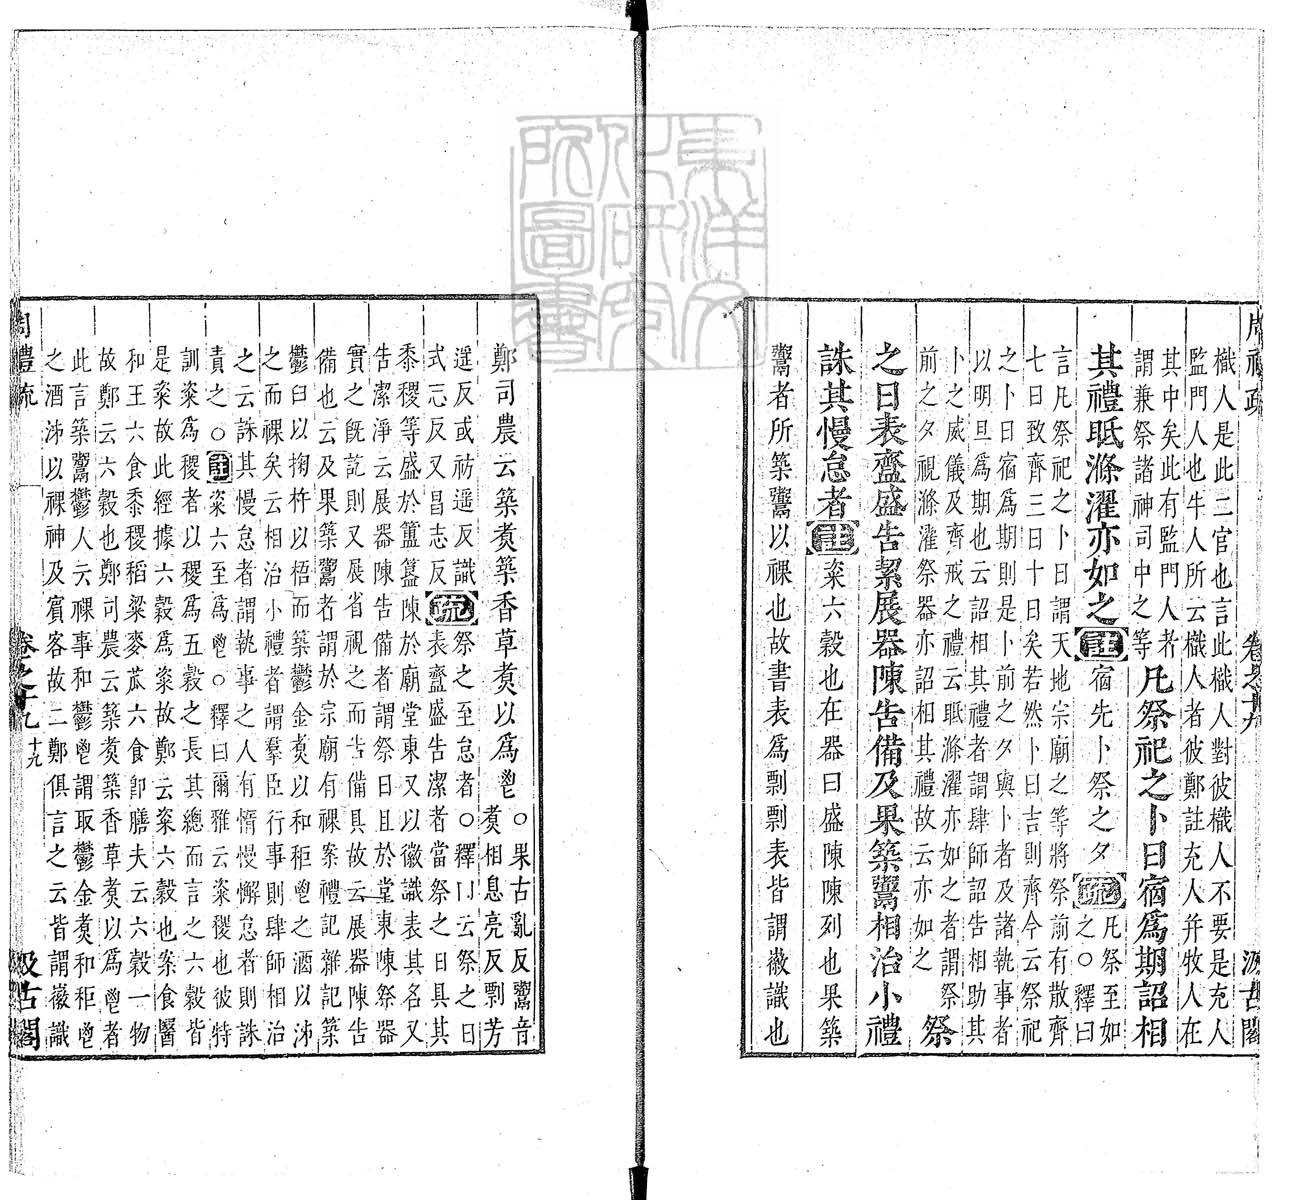 樴人是此二官也言此樴人對彼樴人不要是充人
監門人也牛人所云樴人者彼鄭註充人幷牧人在
其中矣此有監門人者
謂兼祭諸神司中之等
凡祭祀之卜日宿爲期詔相
其禮眡滌濯亦如之
註
宿先卜祭之夕
疏
凡祭至如
之○釋曰
言凡祭祀之卜日謂天地宗廟之等將祭前有散齊
七日致齊三日十日矣若然卜日吉則齊今云祭祀
之卜日宿爲期則是卜前之夕與卜者及諸執事者
以明旦爲期也云詔相其禮者謂肆師詔告相助其
卜之威儀及齊戒之禮云眡滌濯亦如之者謂祭
前之夕視滌濯祭器亦詔相其禮故云亦如之
祭
之日表齍盛告絜展器陳告備及果築鬻相治小禮
誅其慢怠者
註
粢六穀也在器曰盛陳陳列也果築
鬻者所築鬻以祼也故書表爲剽剽表皆謂徽識也
鄭司農云築煑築香草煑以爲鬯
○果古亂反鬻音
煑相息亮反剽芳
遥反或祊遥反識
式忘反又昌志反
疏
祭之至怠者○釋曰云祭之日
表齍盛告潔者當祭之日具其
黍稷等盛於簠簋陳於廟堂東又以徽識表其名又
告潔淨云展器陳告備者謂祭日且於堂東陳祭器
實之旣訖則又展省視之而告備具故云展器陳告
備也云及果築鬻者謂於宗廟有祼案禮記雜記築
鬱臼以掬杵以梧而築鬱金煑以和秬鬯之酒以泲
之而祼矣云相治小禮者謂羣臣行事則肆師相治
之云誅其慢怠者謂執事之人有惰慢懈怠者則誅
責之○
註
粢六至爲鬯○釋曰爾雅云粢稷也彼特
訓粢爲稷者以稷爲五穀之長其總而言之六穀皆
是粢故此經據六穀爲粢故鄭云粢六穀也案食醫
和王六食黍稷稻粱麥苽六食卽膳夫云六穀一物
故鄭云六穀也鄭司農云築煑築香草煑以爲鬯者
此言築鬻鬱人云祼事和鬱鬯謂取鬱金煑和秬鬯
之酒泲以祼神及賓客故二鄭俱言之云皆謂徽識
周禮疏
卷之十九
十九
汲古閣